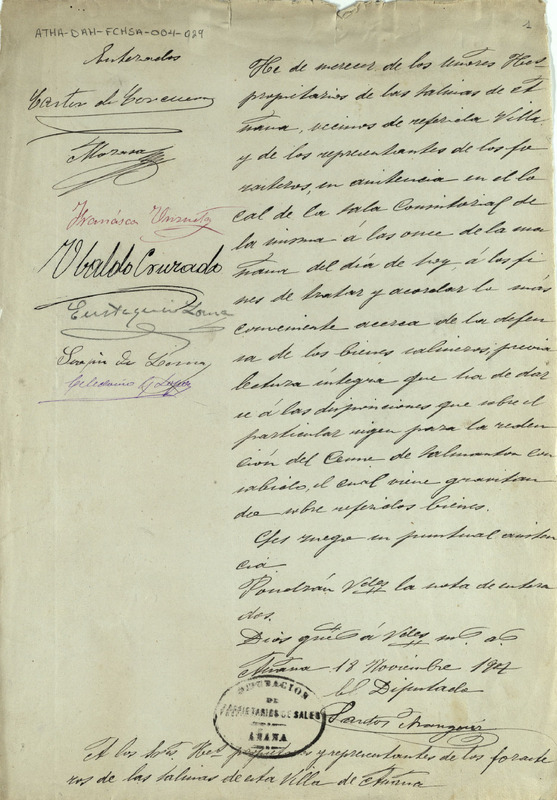 ATHA-DAH-FCHSA-004-029
1
Enterados
Castor de Corcuera
Moraza
Francisco Unzueta
Ubaldo Conrado
Eustaquio Loma
Serafin de Loma
Celedonio G Lopez
He de merecer de los Señores Hos
propietarios de las Salinas de A
ñana, vecinos de referida Villa
y de los representantes de los fo
rasteros, su asistencia en el lo
cal de la Sala Consistorial de
la misma á las once de la ma
ñana del día de hoy, á los fi
nes de tratar y acordar lo mas
conveniente acerca de la defen
sa de los bienes salineros, previa
lectura íntegra que ha de dar
se á las disposiciones que sobre el
particular rigen para la reden
ción del Censo de Salmanton con
sabido, el cual viene gravitan
do sobre referidos bienes.
Les ruego su puntual asisten
cia.
Pondrán Vdes la nota de entera
dos.
Dios gue á Vdes m. a.
Añana 18 Noviembre 1907
El Diputado
Santos
DIPUTACION
DE
PROPIETARIOS DE SALES
AÑANA
A los Sres Hos propietarios y representantes de los foraste
ros de las Salinas de esta Villa de Añana